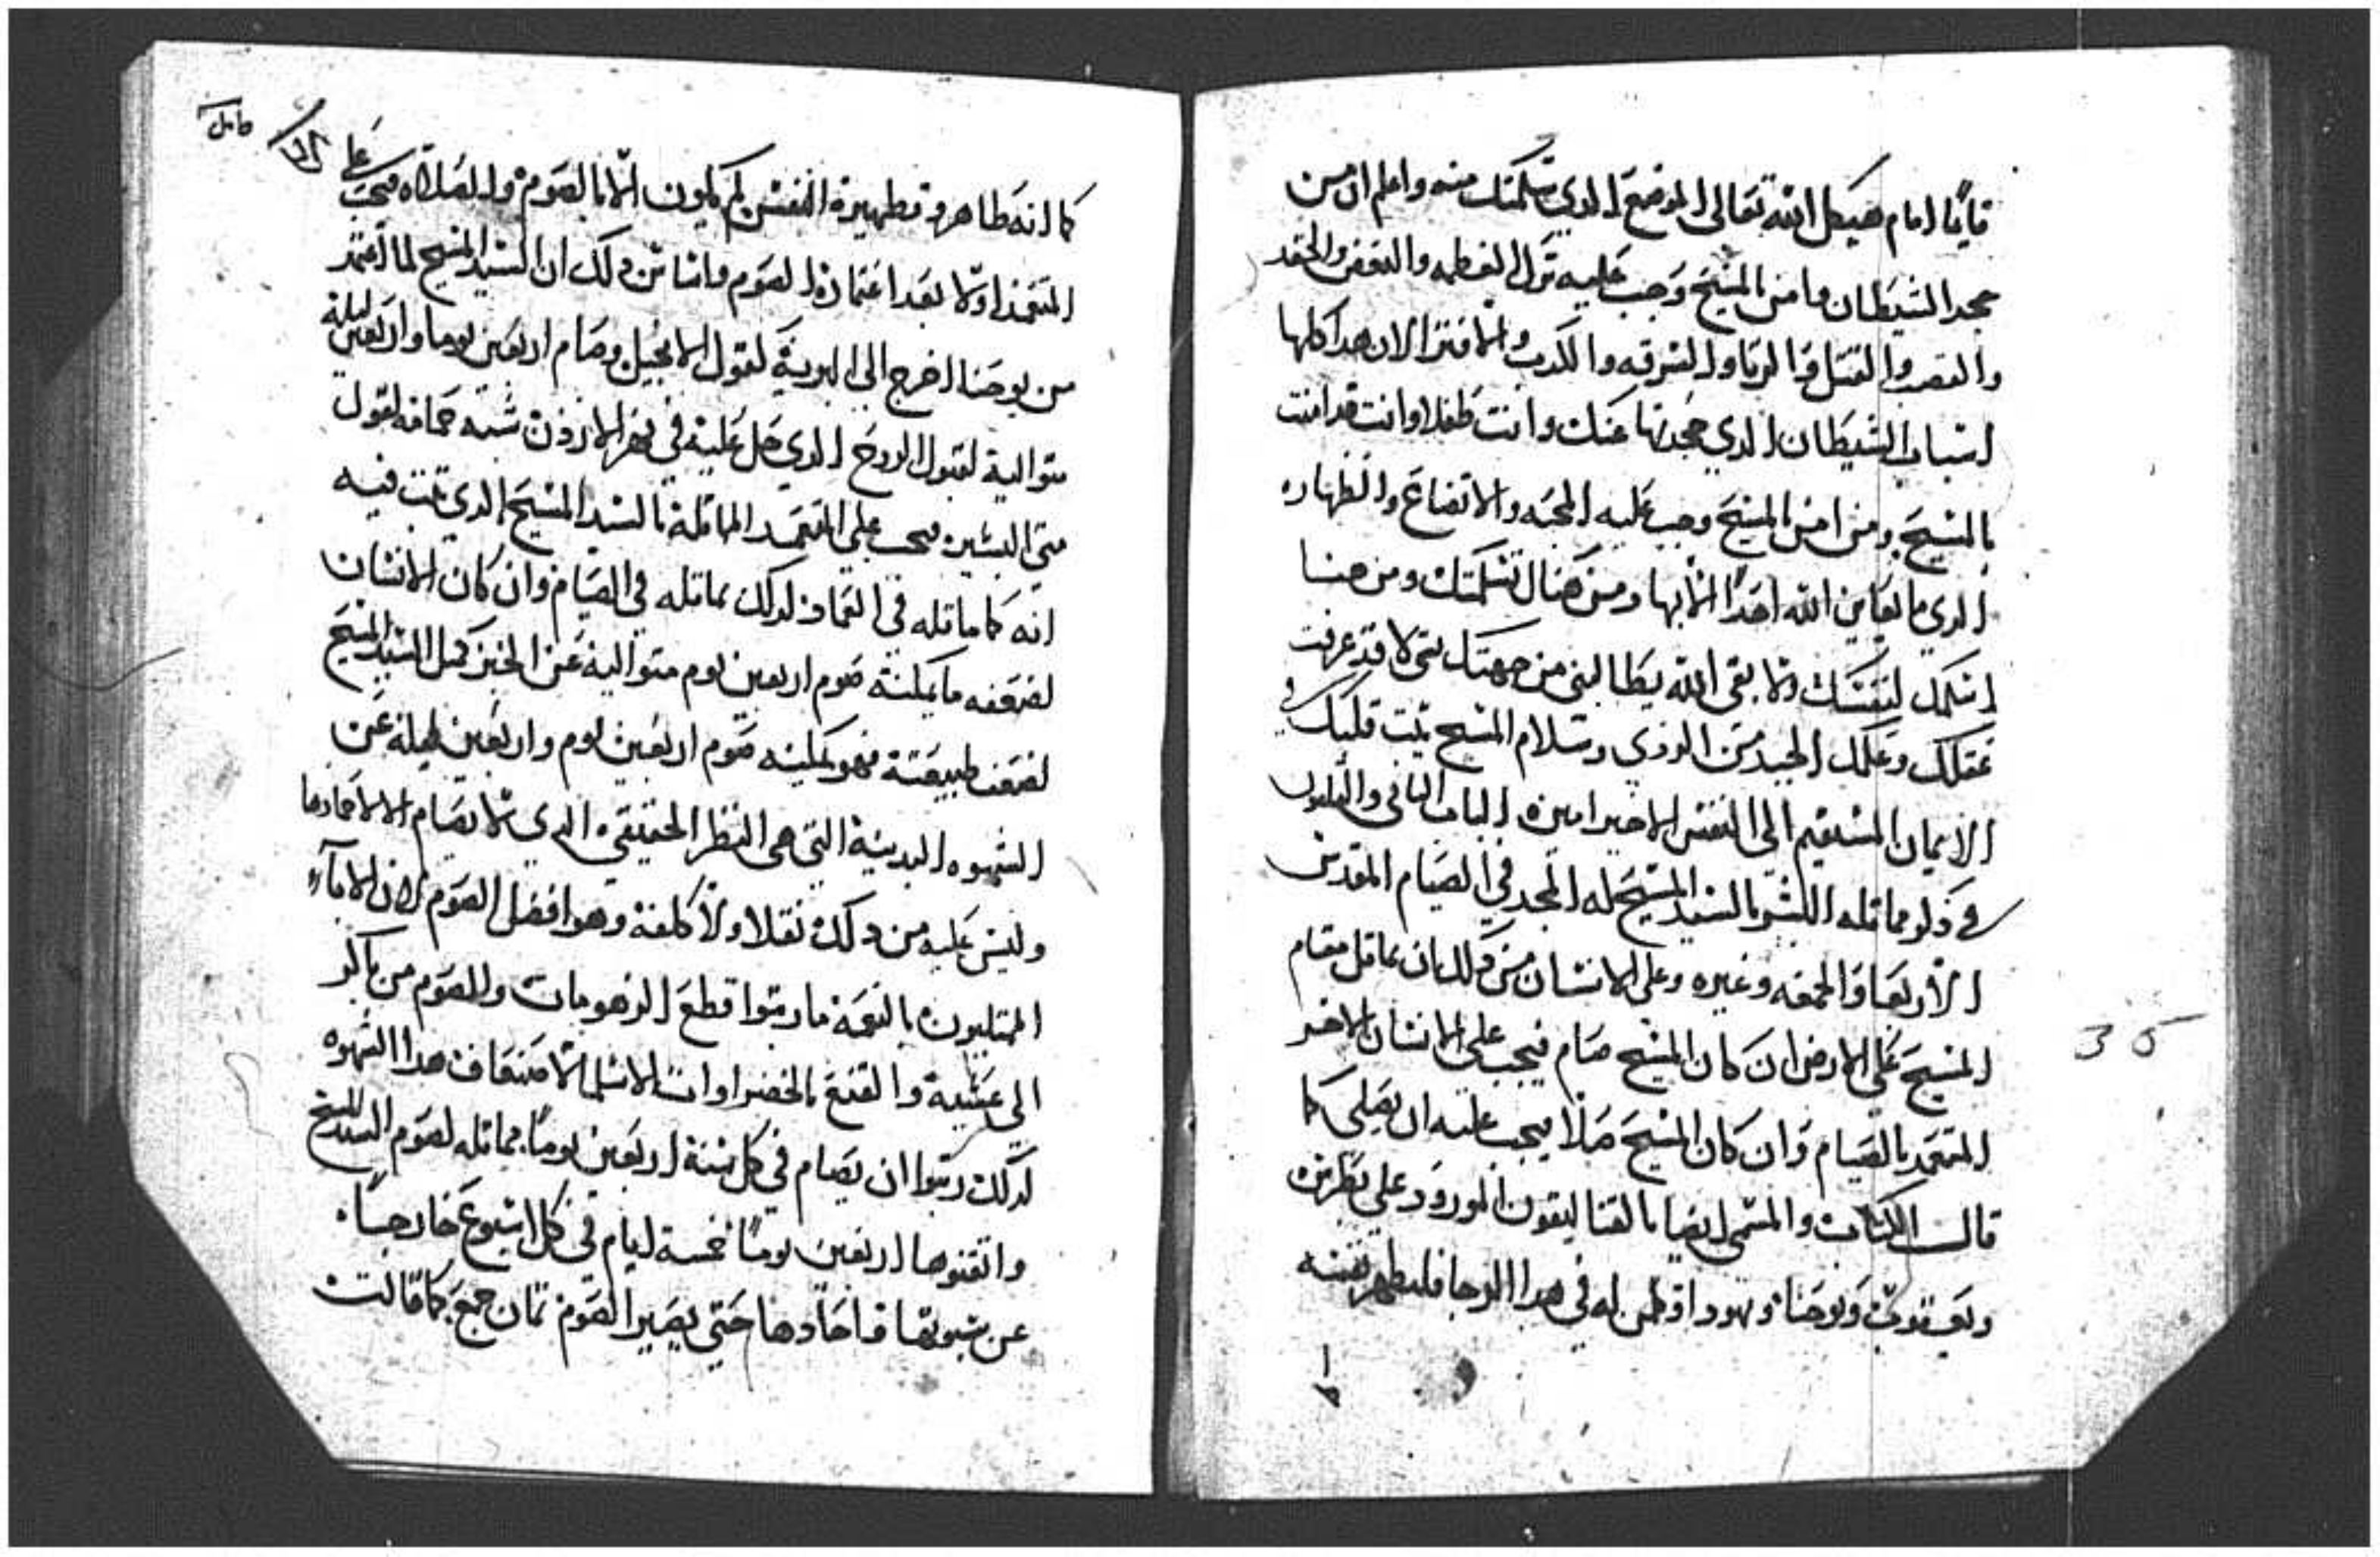 قايمًا امام هيكل الله تعالى الموضع الدي تسلمتك منه واعلم ان من
جحد الشيطان وامن بالمسيح وجب عليه ترك العظمه والبغض والحقد
والغضب والقتل والزنا والسرقه والكدب والافترا لان هدا كلها
اسباب الشيطان الدي جحدتها عنك وانت طفلا وانت قد امنت
بالمسيح ومن امن بالمسيح وجب عليه المحبه والاتضاع والطهاره
الدي ما يعاين الله احدًا الا بها ومن هنال تسلمتك ومن هنا
اتسلمك لنفسك ولا بقى الله يطالبني من جهتك بتى لا قد عرفت
عقلك وعلمك الجيد من الردي وسلام المسيح يثبت قلبك في
الايمان المستقيم الى النفس الاخير امين الباب التاني والتلتون
في دكر مماتله البشر بالسيد المسيح له المجد في الصيام المقدس
الاربعا والجمعه وغيره وعلى الانسان من دلك ان يماتل مقام
المسيح على الارض ان كان المسيح صام فيجب على الانسان الاخر
المتعمد بالصيام وان كان المسيح صلا فيجب عليه ان يصلي كما
قالت الكتاب والمسمى ايضا بالقتاليقون المورود على بطرس
ويعقوب ويوحنا ويهودا في هدا الرجا فليطهر نفسه
35
كما انه طاهر وتطهيرة النفس لم يكون الا بالصوم والصلاه فيجب على
المتعمد اولا بعد اعتماده الصوم واساس دلك ان السيد المسيح لما اعتمد
من يوحنا اخرج الى البرية لقول الانجيل وصام اربعين يوما واربعين ليلة
متوالية لقبول الروح الدي حل عليه في نهر الاردن شبه حمامه لقول
متى البشير فيجب على المتعمد المماتلة بالسيد المسيح الدي تبت فيه
انه كما ماتله في العماد لدلك يماتله في الصيام وان كان الانسان
لضعفه ما يمكنه صوم اربعين يوم متوالية عن الخبز كمل السيد المسيح
لضعف طبيعته فهو يمكنه صوم اربعين يوم واربعين ليله عن
الشهوه البدنية التي هي الفطر الحقيقي الدي لا يصام الا
وليس عليه من دلك تقلا ولا كلفة وهو افضل الصوم لان الاباء
الممتليون بالنعمة ما رتبوا قطع الزهومات والصوم من باكر
الى عشية والقنع بالخضراوات الا هدا الشهوه
لدلك رتبوا ان يصام في كل سنة اربعين يومًا مماتله لصوم السيد المسيح
واتقنوها اربعين يومًا خمسة ايام في كل اسبوع خارجًا
عن سبوتها واحادها حتى يصير الصوم تمان جمع كما قالت